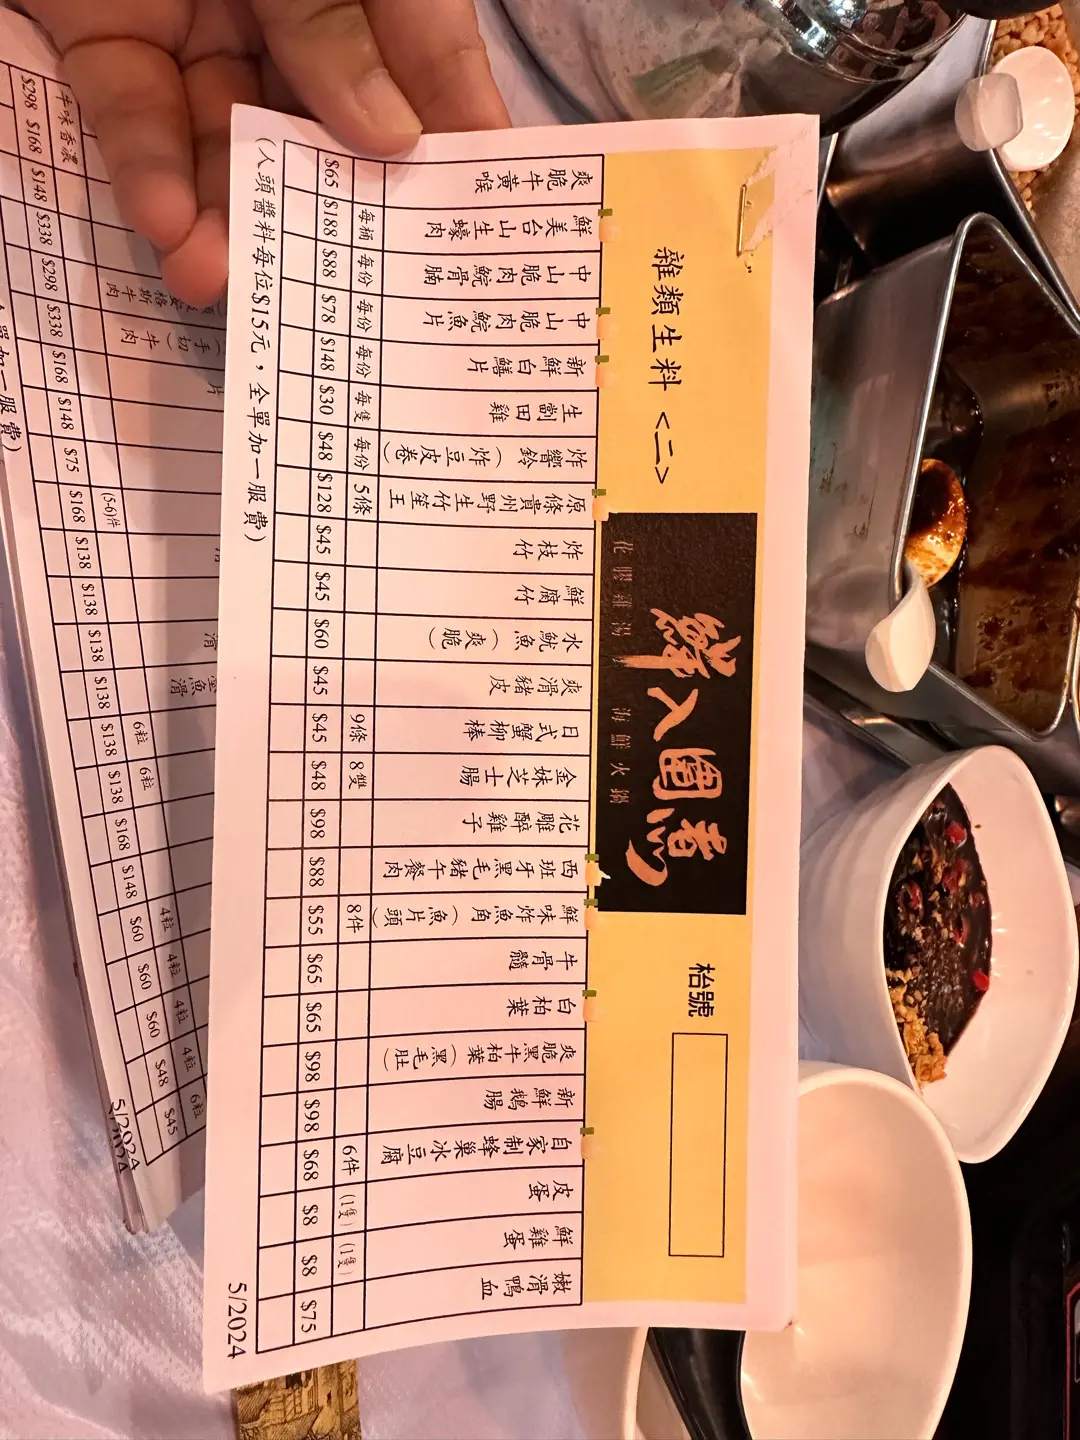 雜類生料<二>
鮮入圍煮
花膠雞湯 海鮮火鍋
枱號
爽脆牛黃喉 $65
鮮美台山生蠔肉 每桶 $188
中山脆肉鯇骨腩 每份 $88
中山脆肉鯇魚片 每份 $78
新鮮白鱔片 每份 $148
生劏田雞 每隻 $30
炸響鈴(炸豆皮卷) 每份 $48
原條貴州野生竹笙王 5條 $128
炸枝竹 $45
鮮腐竹 $45
水魷魚(爽脆) $60
爽滑豬皮 $45
日式蟹柳棒 9條 $45
金妹芝士腸 8隻 $48
花雕醉雞子 $98
西班牙黑毛豬午餐肉 $88
鮮味炸魚角(魚片頭) 8件 $55
牛骨髓 $65
白柏葉 $65
爽脆牛柏葉(黑毛肚) $98
新鮮鵝腸 $98
自家制蜂巢冰豆腐 6件 $68
皮蛋 (1隻) $8
鮮雞蛋 (1隻) $8
嫩滑鴨血 $75
(人頭醬料每位$15元，全單加一服費)
5/2024
牛味香濃
$298
$168
$148
$338
格斯牛肉 $298
(手切)牛肉 $338
片 $168
$148
$75
(5-6)件 $168
$138
$138
滑 $138
墨魚滑 $138
6粒 $138
6粒 $138
$168
$148
4粒 $60
4粒 $60
4粒 $60
4粒 $48
6粒 $45
單加一服費)
5/2024